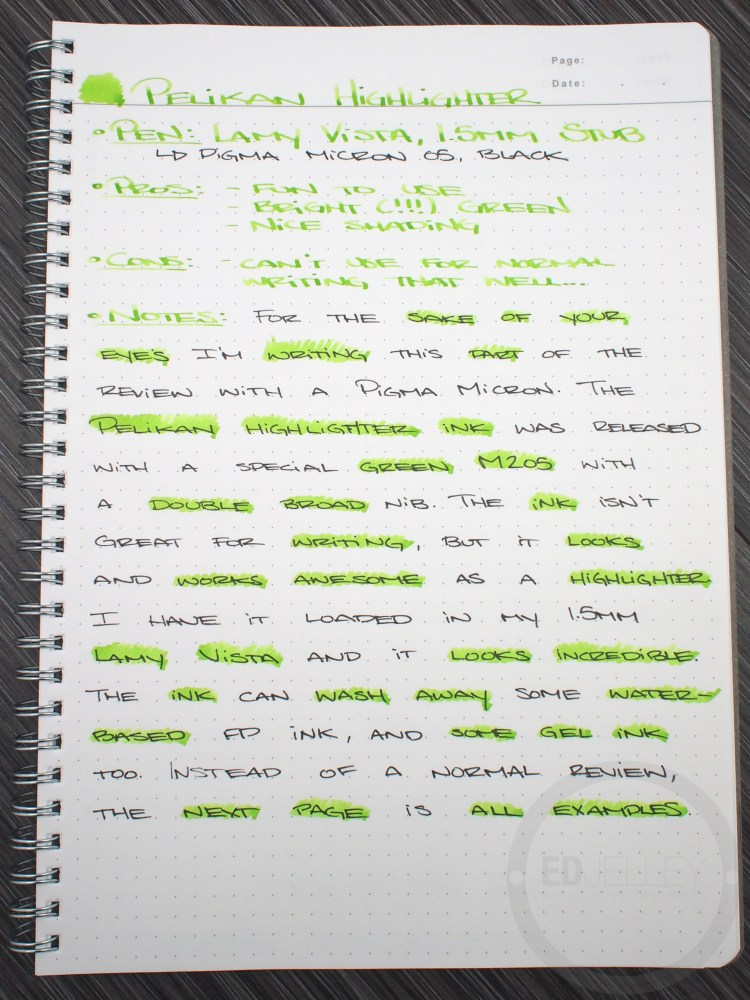 Page:
Date:
PELIKAN HIGHLIGHTER
• PEN: LAMY VISTA, 1.5MM STUB
↳ PIGMA MICRON 05, BLACK
• PROS: - FUN TO USE
- BRIGHT (!!!) GREEN
- NICE SHADING
• CONS: - CAN'T USE FOR NORMAL
WRITING THAT WELL...
• NOTES: FOR THE SAKE OF YOUR
EYES I'M WRITING THIS PART OF THE
REVIEW WITH A PIGMA MICRON. THE
PELIKAN HIGHLIGHTER INK WAS RELEASED
WITH A SPECIAL GREEN M205 WITH
A DOUBLE BROAD NIB. THE INK ISN'T
GREAT FOR WRITING, BUT IT LOOKS
AND WORKS AWESOME AS A HIGHLIGHTER
I HAVE IT LOADED IN MY 1.5MM
LAMY VISTA AND IT LOOKS INCREDIBLE.
THE INK CAN WASH AWAY SOME WATER-
BASED FP INK, AND SOME GEL INK
TOO. INSTEAD OF A NORMAL REVIEW,
THE NEXT PAGE IS ALL EXAMPLES.
ED JELLEY